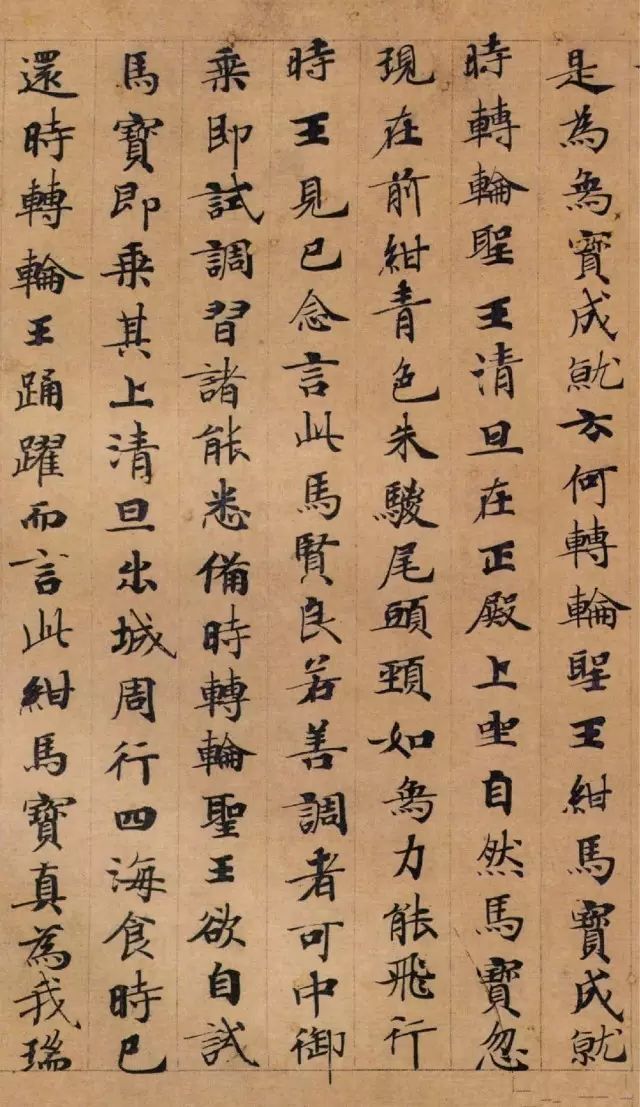 是為象寶成就云何轉輪聖王紺馬寶成就
時轉輪聖王清旦在正殿上坐自然馬寶忽
現在前紺青色朱騣尾頭頸如象力能飛行
時王見已念言此馬賢良若善調者可中御
乘即試調習諸能悉備時轉輪聖王欲自試
馬寶即乘其上清旦出城周行四海食時已
還時轉輪王踊躍而言此紺馬寶真為我瑞